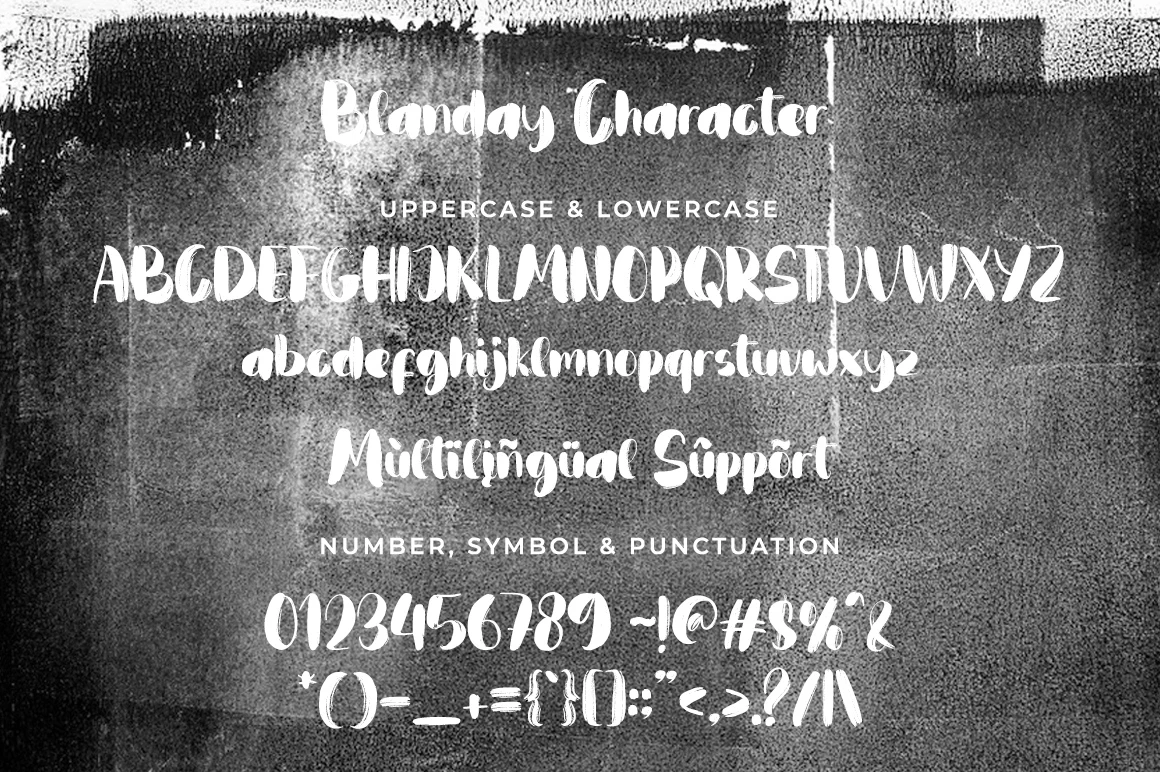 Blanday Character
UPPERCASE & LOWERCASE
ABCDEFGHIJKLMNOPQRSTUVWXYZ
abcdefghijklmnopqrstuvwxyz
Mùltïlįñgüal Sûppõrt
NUMBER, SYMBOL & PUNCTUATION
0123456789 ~!@#$%^&
*()-_+={`}[]:;"<,>.?/|\